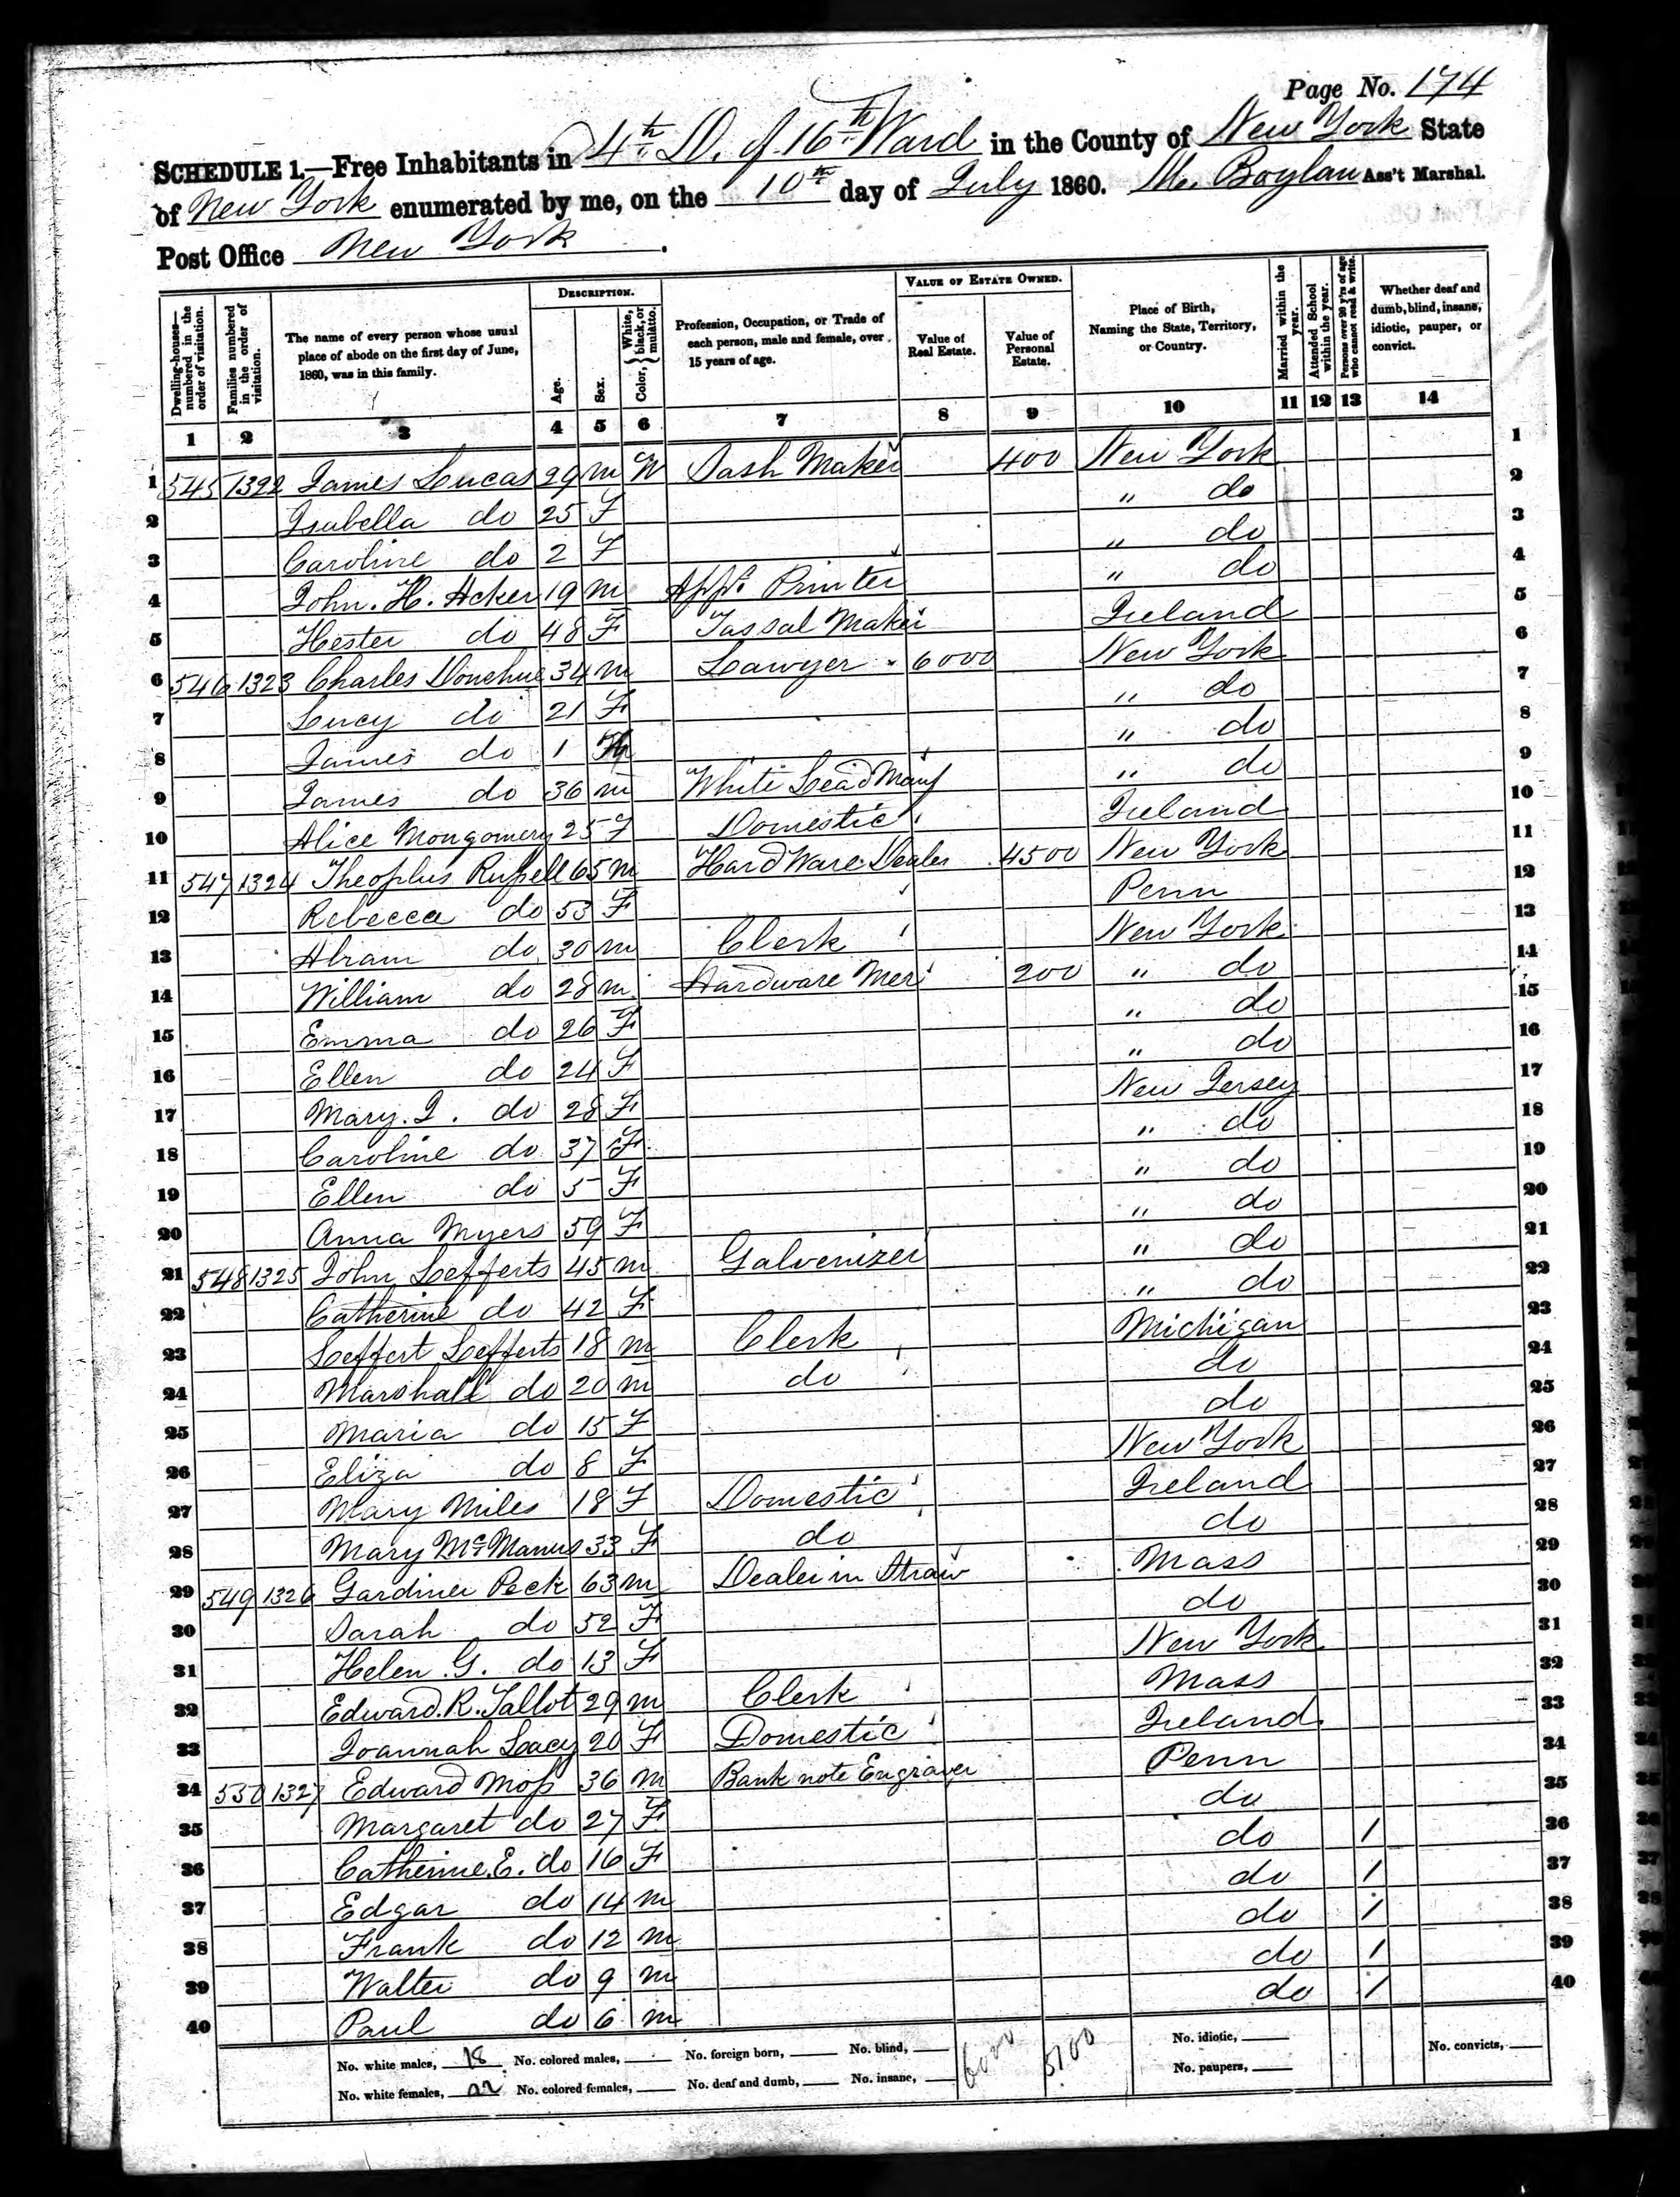 Page No. 174
SCHEDULE 1.—Free Inhabitants in 4th D. of 16th Ward in the County of New York State
of New York enumerated by me, on the 10th day of July 1860. M. Boylan Ass't Marshal.
Post Office New York.
DESCRIPTION. VALUE OF ESTATE OWNED.
Dwelling-houses—numbered in the order of visitation. Families numbered in the order of visitation. The name of every person whose usual place of abode on the first day of June, 1860, was in this family. Age. Sex. Color, { White, black, or mulatto. Profession, Occupation, or Trade of each person, male and female, over 15 years of age. Value of Real Estate. Value of Personal Estate. Place of Birth, Naming the State, Territory, or Country. Married within the year. Attended School within the year. Persons over 20 y'rs of age who cannot read & write. Whether deaf and dumb, blind, insane, idiotic, pauper, or convict.
1 2 3 4 5 6 7 8 9 10 11 12 13 14
1 545 1322 James Lucas 29 m W Sash Maker 400 New York 1
2 Isabella do 25 F " do 2
3 Caroline do 2 F " do 3
4 John. H. Acker 19 m App. Printer " do 4
5 Hester do 48 F Tassal Maker Ireland 5
6 546 1323 Charles Donehue 34 m Lawyer 6000 New York 6
7 Lucy do 21 F " do 7
8 James do 1 " do 8
9 James do 36 m White Lead Manf " do 9
10 Alice Montgomery 25 F Domestic Ireland 10
11 547 1324 Theoplus Russell 65 m Hard Ware Dealer 4500 New York 11
12 Rebecca do 53 F Penn 12
13 Abram do 30 m Clerk New York 13
14 William do 28 m Hardware Mer 200 " do 14
15 Emma do 26 F " do 15
16 Ellen do 24 F " do 16
17 Mary. J. do 28 F New Jersey 17
18 Caroline do 37 F " do 18
19 Ellen do 5 F " do 19
20 Anna Myers 59 F " do 20
21 548 1325 John Lefferts 45 m Galvenizer " do 21
22 Catherine do 42 F " do 22
23 Leffert Lefferts 18 m Clerk Michigan 23
24 Marshall do 20 m do do 24
25 Maria do 15 F do 25
26 Eliza do 8 F New York 26
27 Mary Miles 18 F Domestic Ireland 27
28 Mary McManus 33 F do do 28
29 549 1326 Gardiner Peck 63 m Dealer in Straw Mass 29
30 Sarah do 52 F do 30
31 Helen G. do 13 F New York 31
32 Edward. R. Tallot 29 m Clerk Mass 32
33 Joannah Lacy 20 F Domestic Ireland 33
34 550 1327 Edward Moss 36 m Bank note Engraver Penn 34
35 Margaret do 27 F do 35
36 Catherine. E. do 16 F do 1 36
37 Edgar do 14 m do 1 37
38 Frank do 12 m do 1 38
39 Walter do 9 m do 1 39
40 Paul do 6 m do 1 40
No. white males, 18 No. colored males, No. foreign born, No. blind, 6000 5100 No. idiotic, No. convicts,
No. white females, 22 No. colored females, No. deaf and dumb, No. insane, No. paupers,